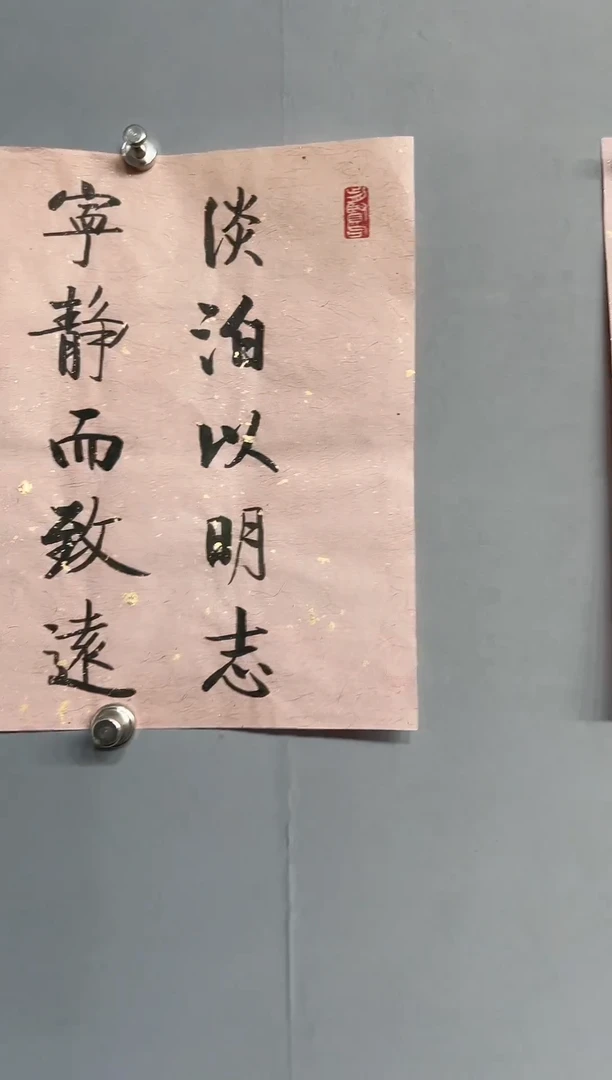 淡泊以明志
寧靜而致遠